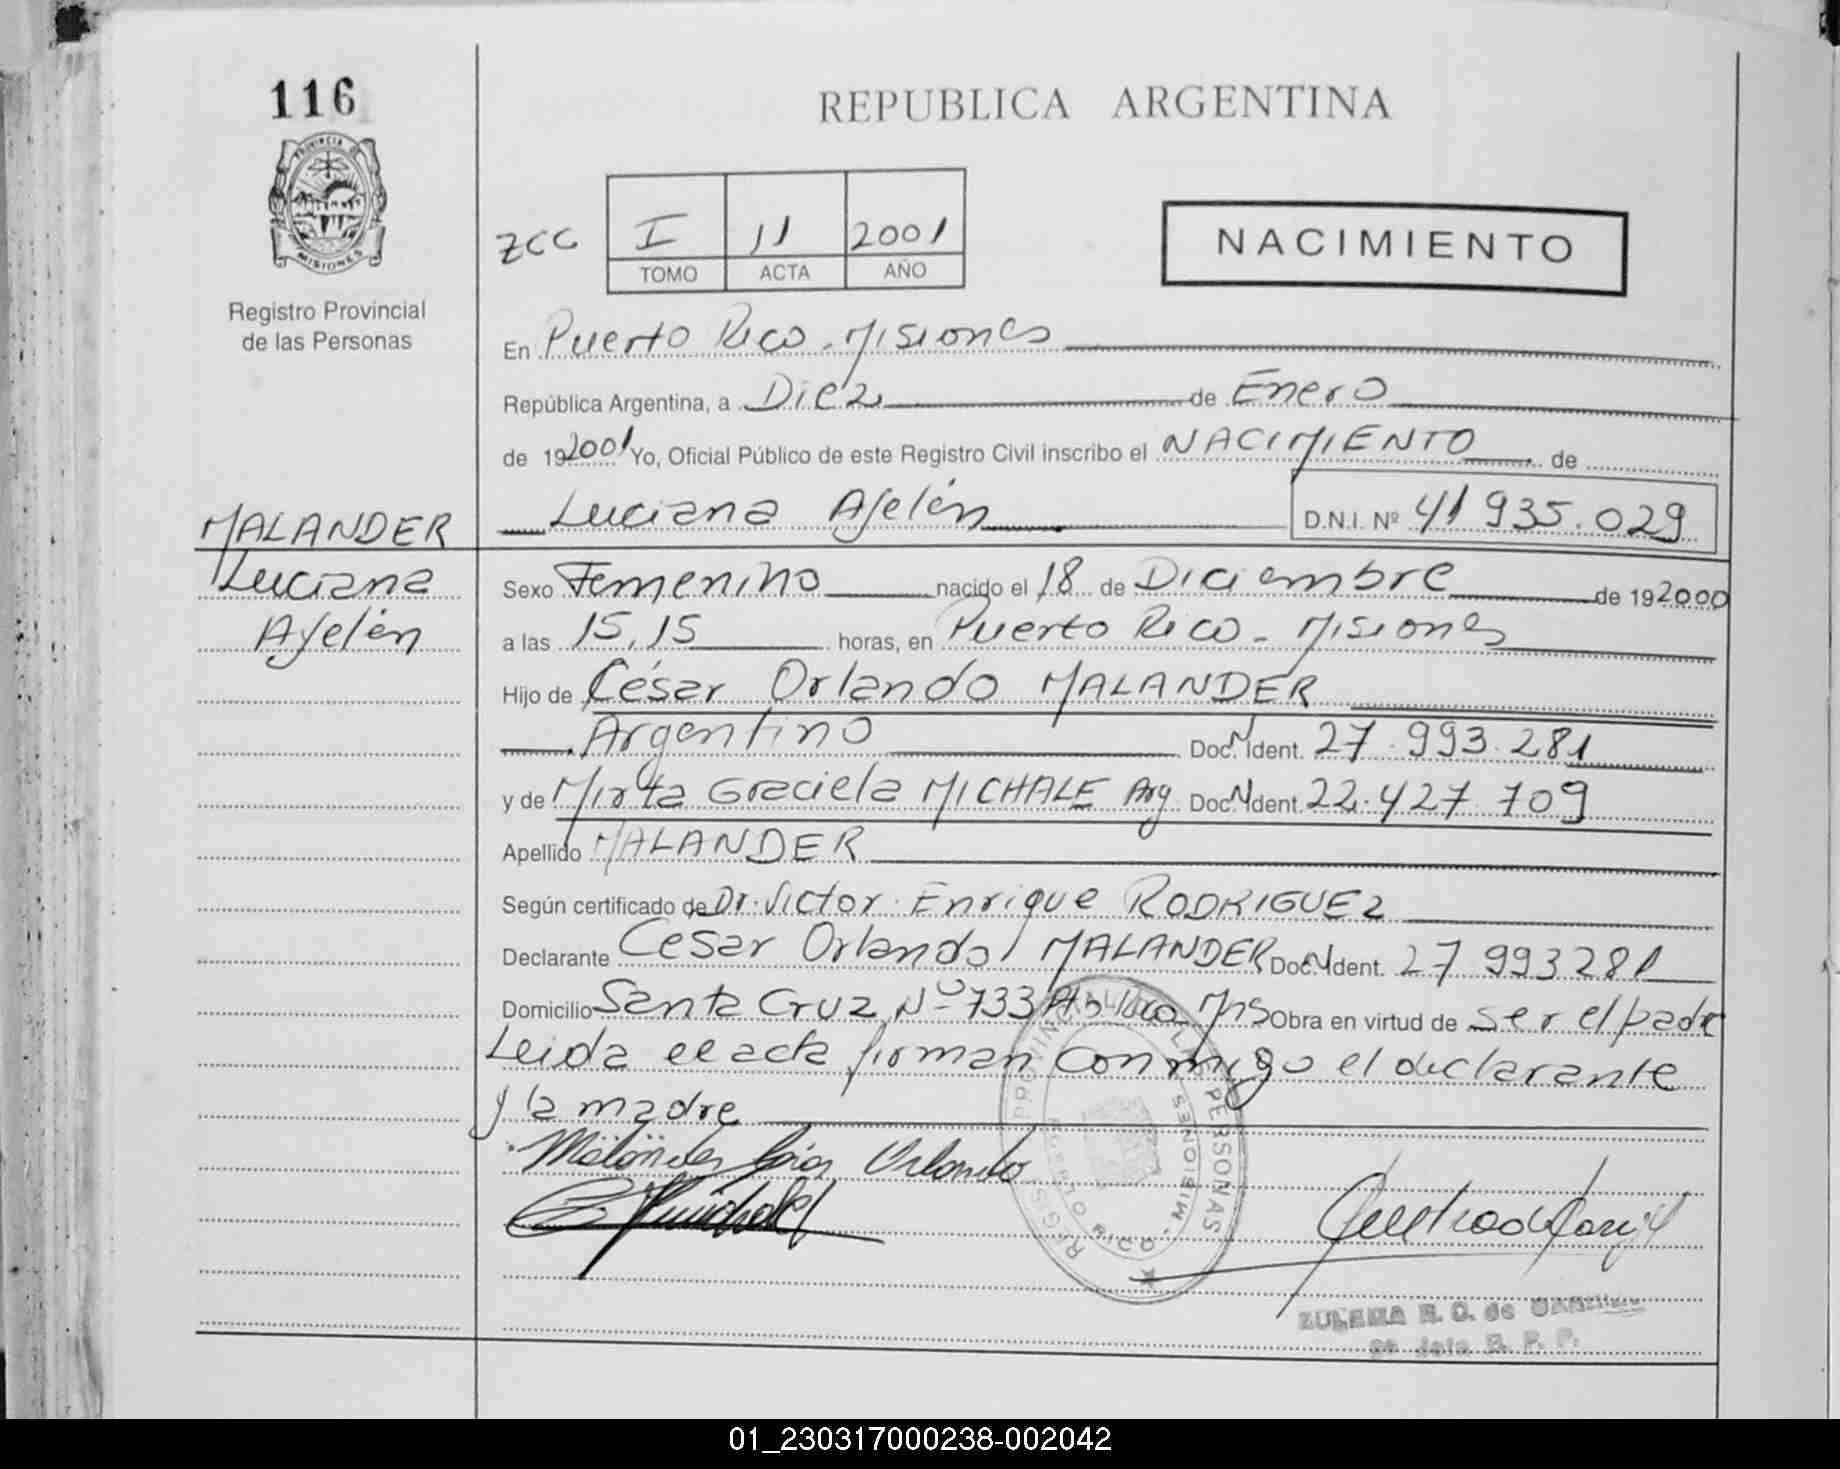 116
REPUBLICA ARGENTINA
PROVINCIA DE
MISIONES
Registro Provincial
de las Personas
ZCC
I 11 2001
TOMO ACTA AÑO
NACIMIENTO
En Puerto Rico - Misiones
República Argentina, a Diez de Enero
de 192001 Yo, Oficial Público de este Registro Civil inscribo el NACIMIENTO de
Luciana Ayelén D.N.I. Nº 41 935.029
MALANDER
Luciana
Ayelén
Sexo Femenino nacido el 18 de Diciembre de 192000
a las 15,15 horas, en Puerto Rico - Misiones
Hijo de César Orlando MALANDER
Argentino Doc. N Ident. 27.993.281
y de Mirta Graciela MICHALE Arg. Doc. N Ident. 22.427.709
Apellido MALANDER
Según certificado de Dr. Victor Enrique RODRIGUEZ
Declarante César Orlando MALANDER Doc. N Ident. 27 993281
Domicilio Santa Cruz Nº 733 Mns Obra en virtud de ser el padre
Leida el acta firman conmigo el declarante
y la madre
Malander César Orlando
PERSONAS
PUERTO RICO - MISIONES
ZULEMA E. O. de
R. P. P.
01_230317000238-002042